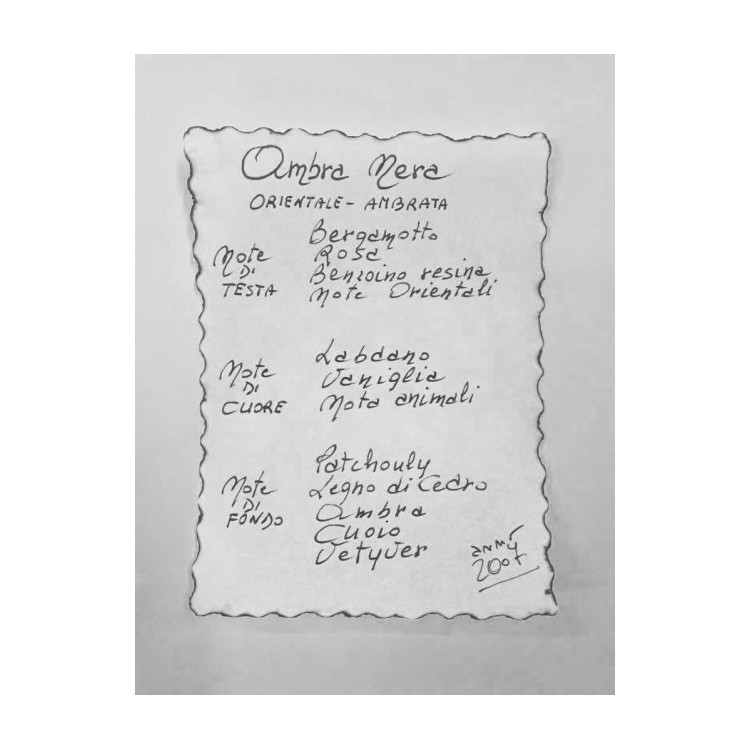 Ambra Nera
ORIENTALE - AMBRATA
Note
DI
TESTA
Bergamotto
Rosa
Benzoino resina
Note Orientali
Note
DI
CUORE
Labdano
Vaniglia
Nota animali
Note
DI
FONDO
Patchouly
Legno di Cedro
Ambra
Cuoio
Vetyver
2007